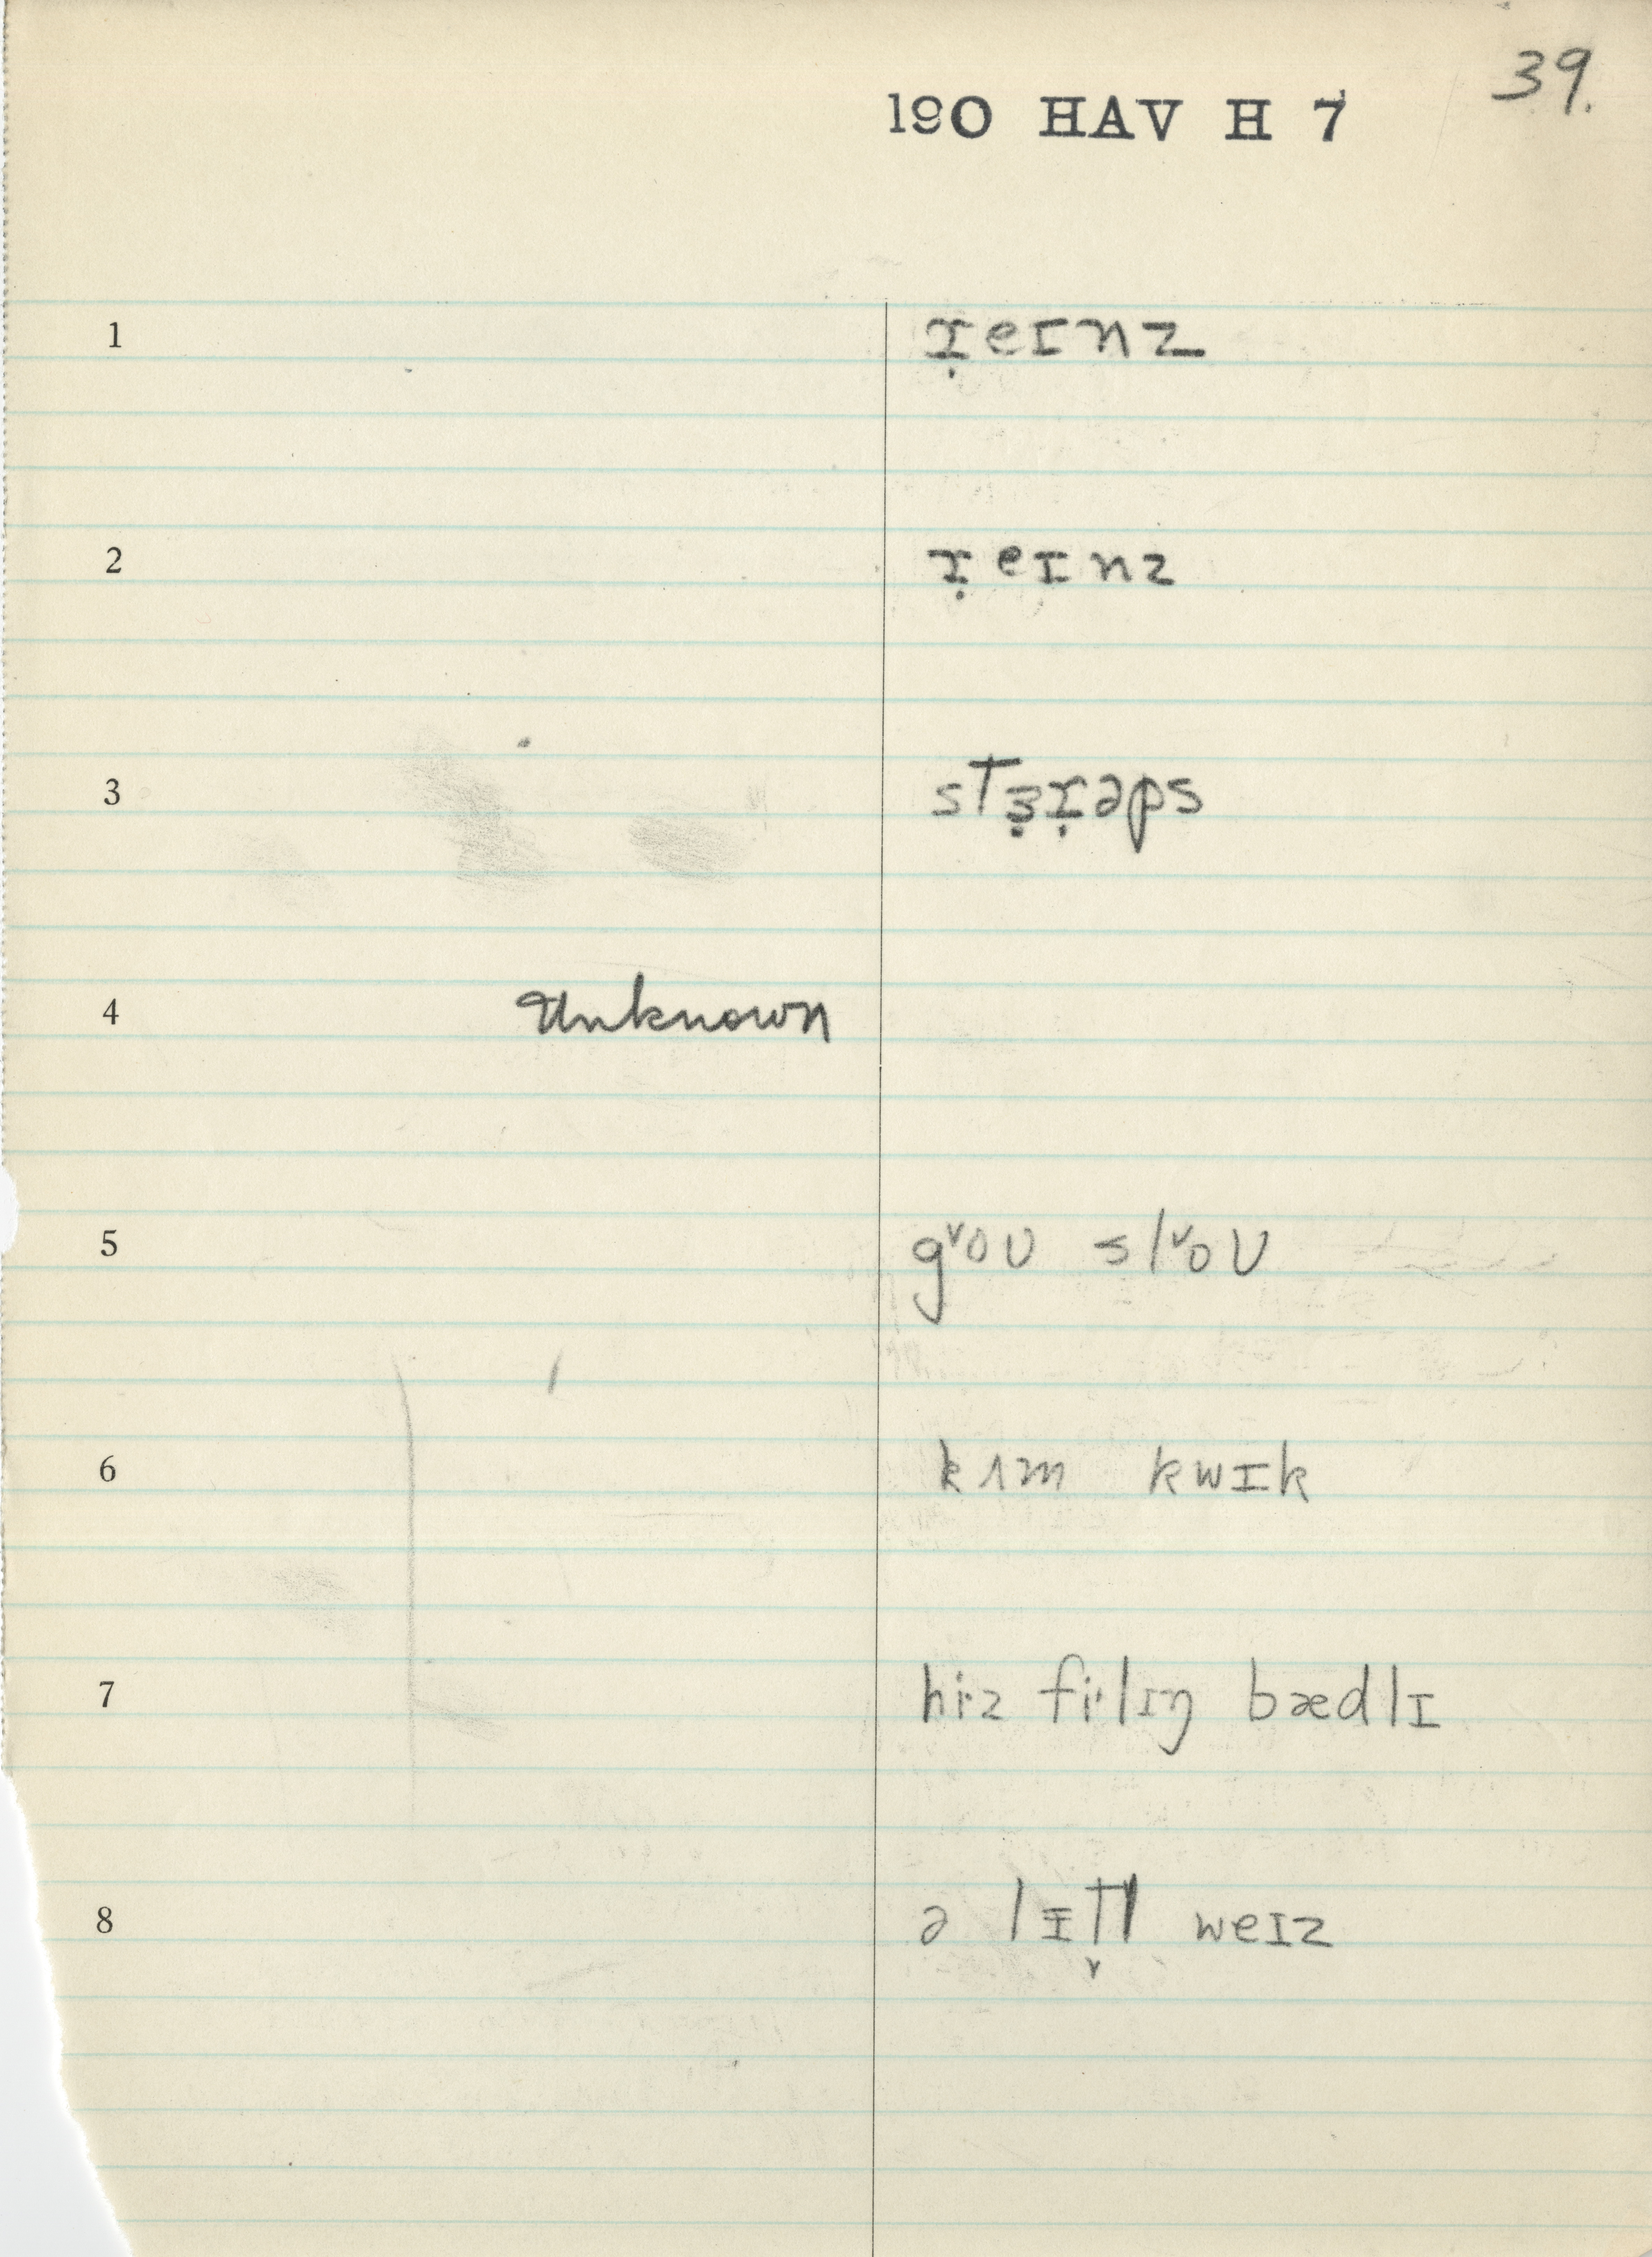 39.
190 HAV H 7
1 ɹ̣eɪnz
2 ɹ̣eɪnz
3 stɜ̣ɹ̣əps
4 Unknown
5 g˅oʊ sl˅oʊ
6 kʌm kwɪk
7 hi·z fi·lɪŋ bædlɪ
8 ə lɪ̵t̬l weɪz